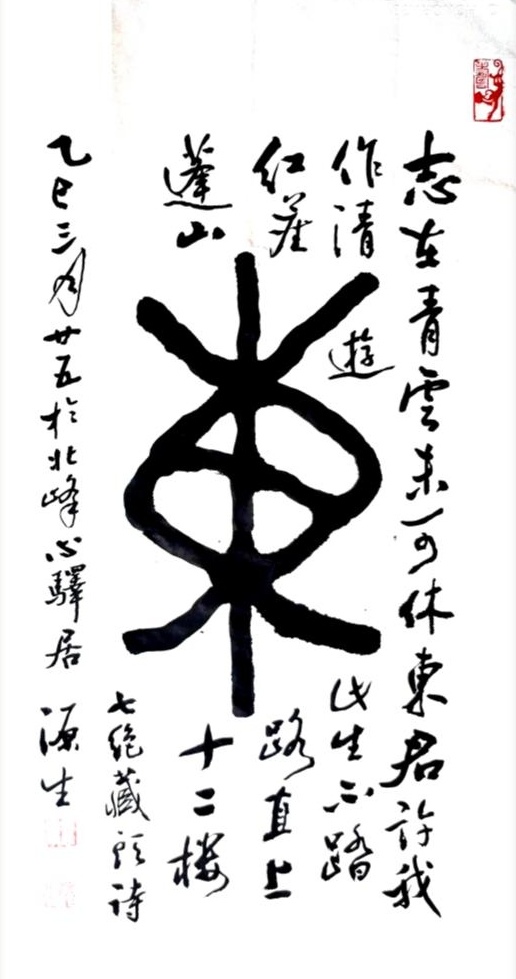 志在青雲未可休東君許我
作清遊此生不踏
红塵路直上
蓬山十二楼
東
七絶藏頭詩
乙巳三月廿五於北峰心驛居 源生